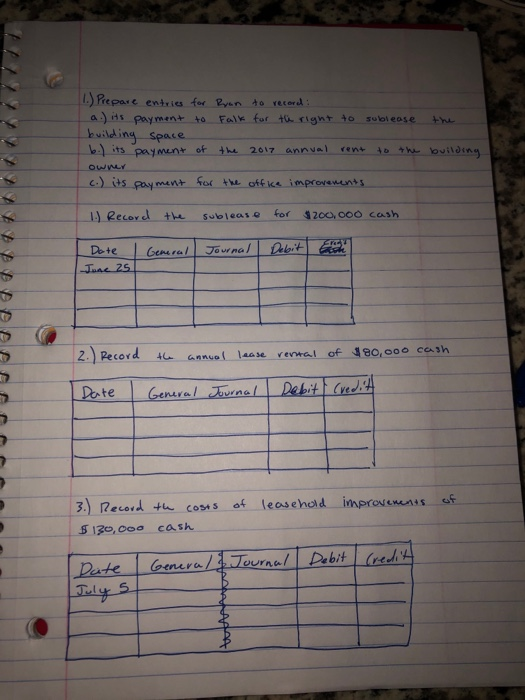 1.) Prepare entries for Ryan to record:
a.) its payment to Falk for the right to sublease the
building space
b.) its payment of the 2017 annual rent to the building
owner
c.) its payment for the office improvements
1) Record the sublease for $200,000 cash
Date General Journal Debit Credit
June 25
2.) Record the annual lease rental of $80,000 cash
Date General Journal Debit Credit
3.) Record the costs of leasehold improvements of
$130,000 cash
Date General Journal Debit Credit
July 5